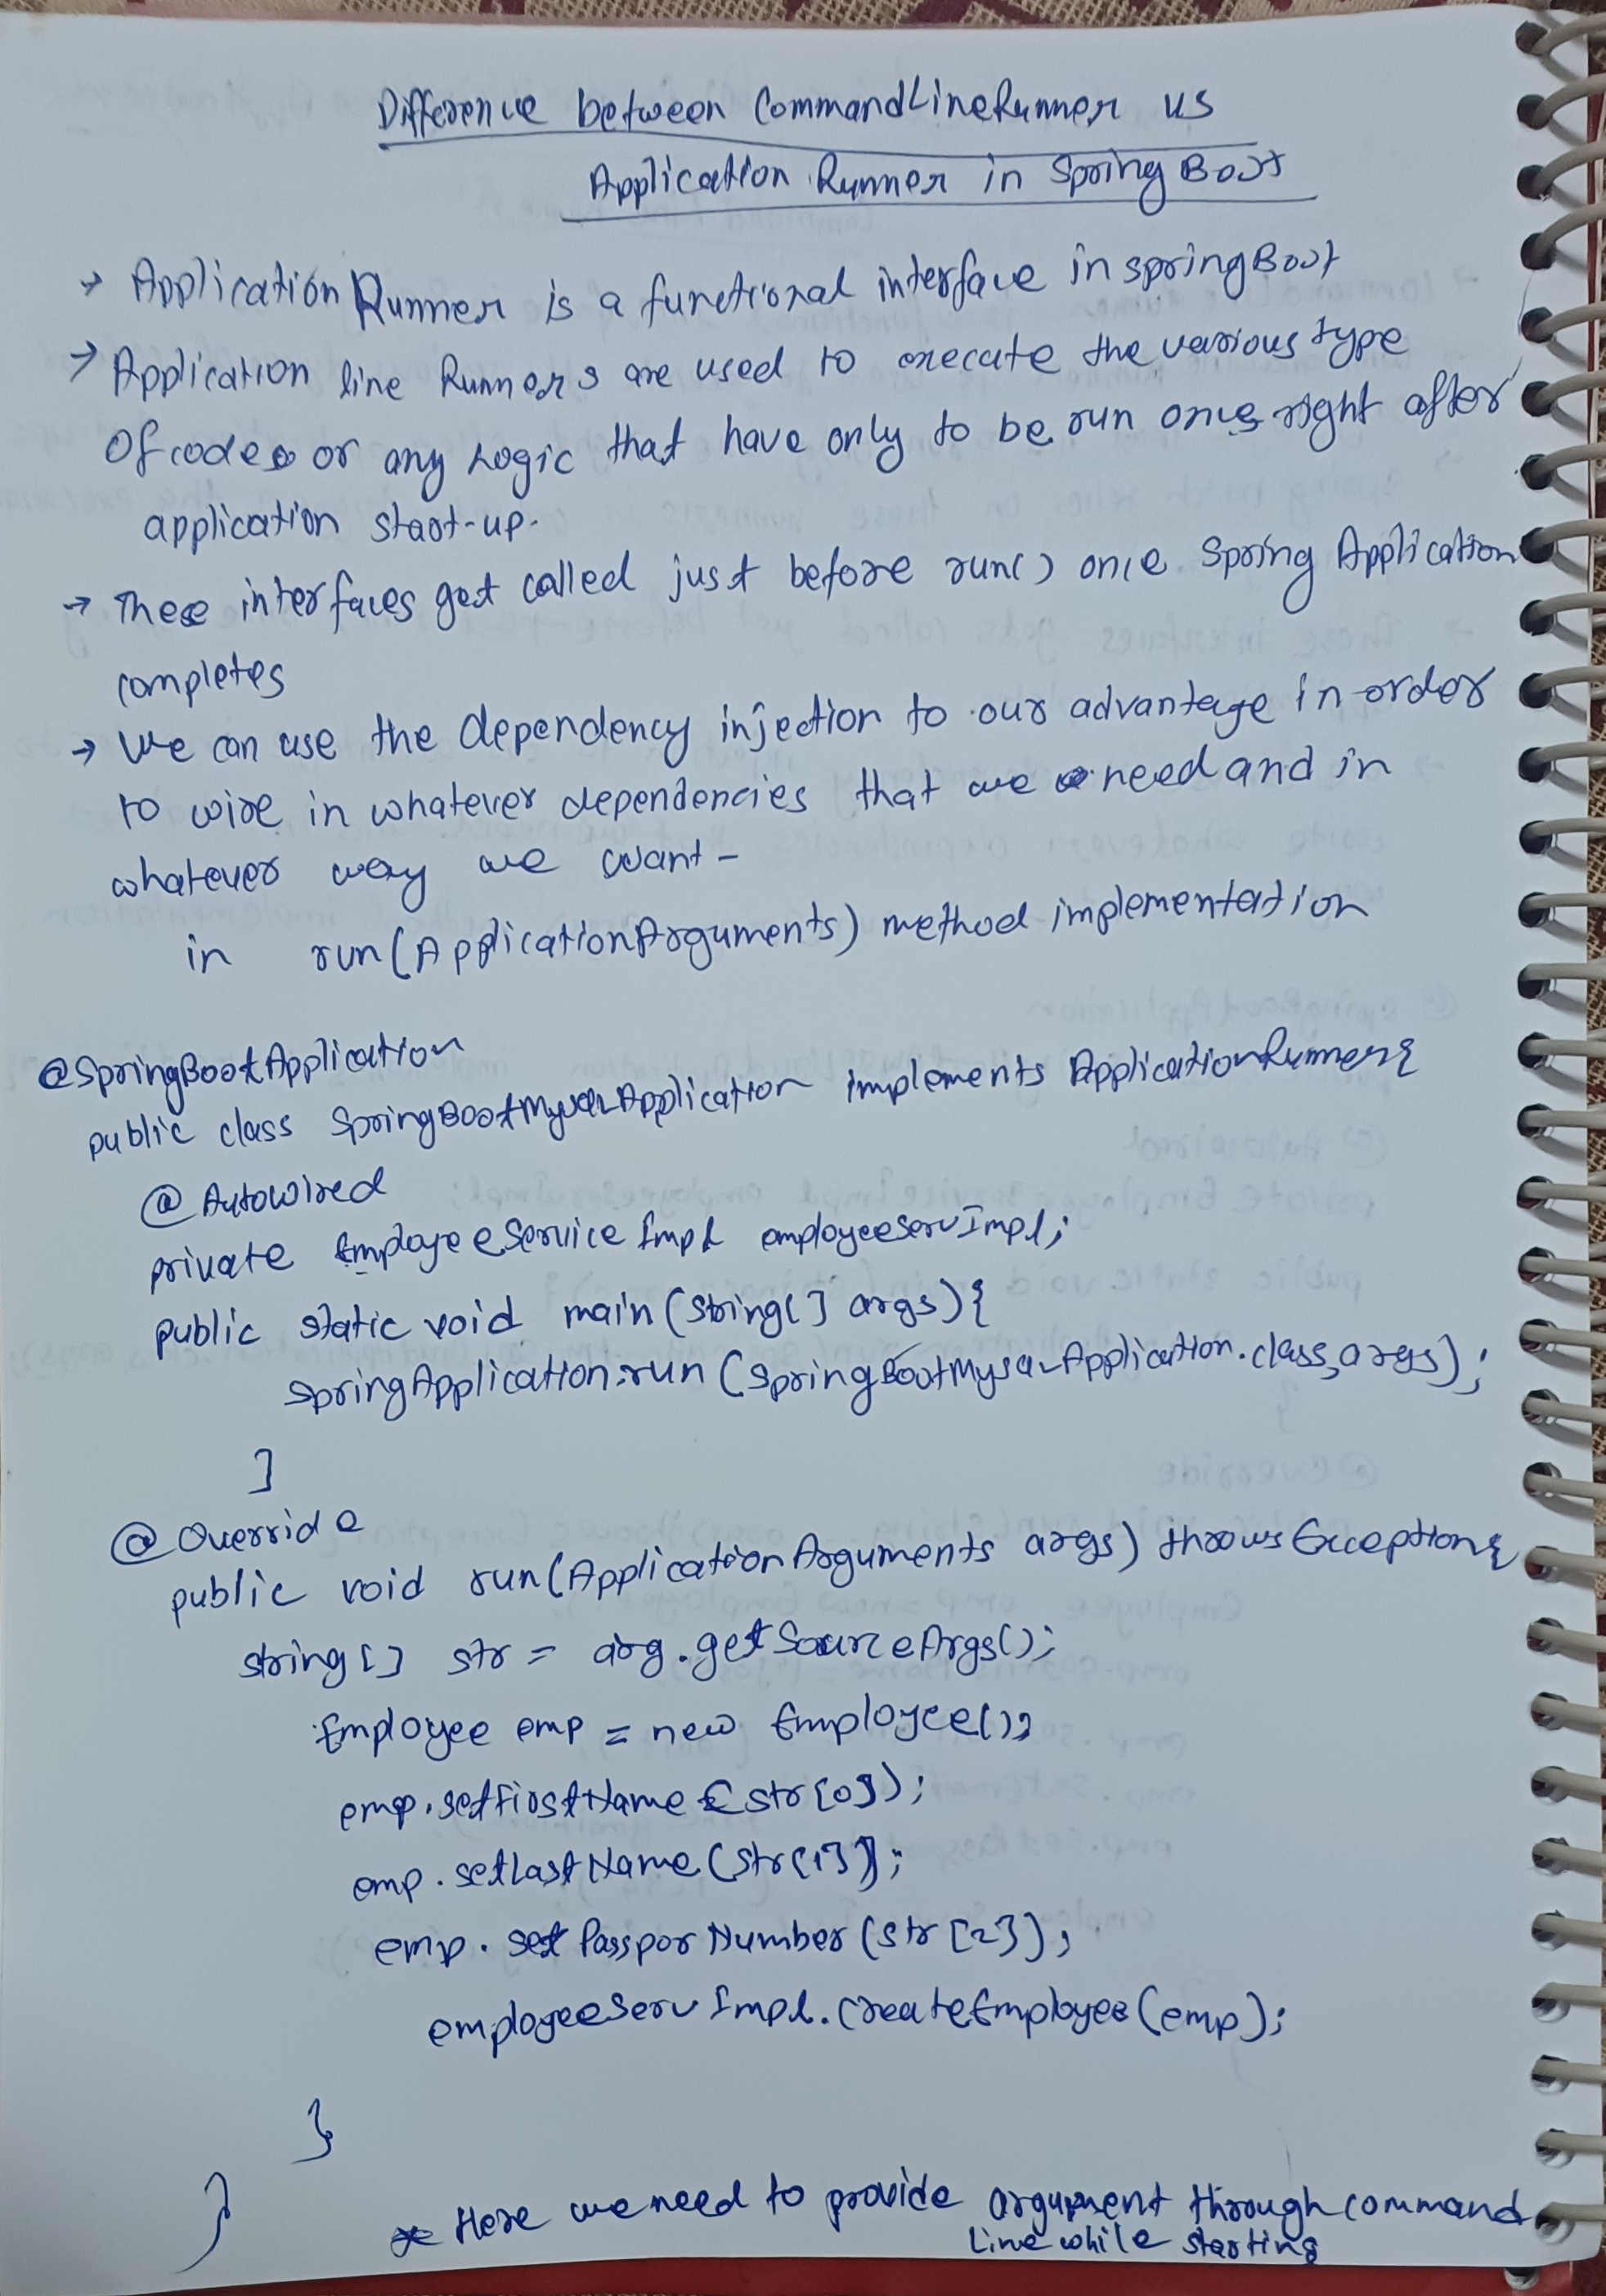 Difference between CommandLineRunner vs
Application Runner in Spring Boot
→ Application Runner is a functional interface in spring Boot
→ Application line Runners are used to execute the various type
Of codes or any Logic that have only to be run once right after
application start-up.
→ These interfaces get called just before run() once Spring Application
completes
→ We can use the dependency injection to our advantage in order
to wire in whatever dependencies that we need and in
whatever way we want -
in run(ApplicationArguments) method implementation
@SpringBootApplication
public class SpringBootMysqlApplication implements ApplicationRunner{
@Autowired
private EmployeeServiceImpl employeeservImpl;
public static void main(string[] args){
springApplication.run(springBootMysqlApplication.class,args);
}
@Override
public void run(ApplicationArguments args) throws Exception{
string[] str = arg.getSourceArgs();
Employee emp = new Employee();
emp.setFirstName(str[0]);
emp.setLastName(str[1]);
emp.setPassporNumber(str[2]);
employeeServImpl.createEmployee(emp);
}
}
* Here we need to provide argument through command
Line while starting